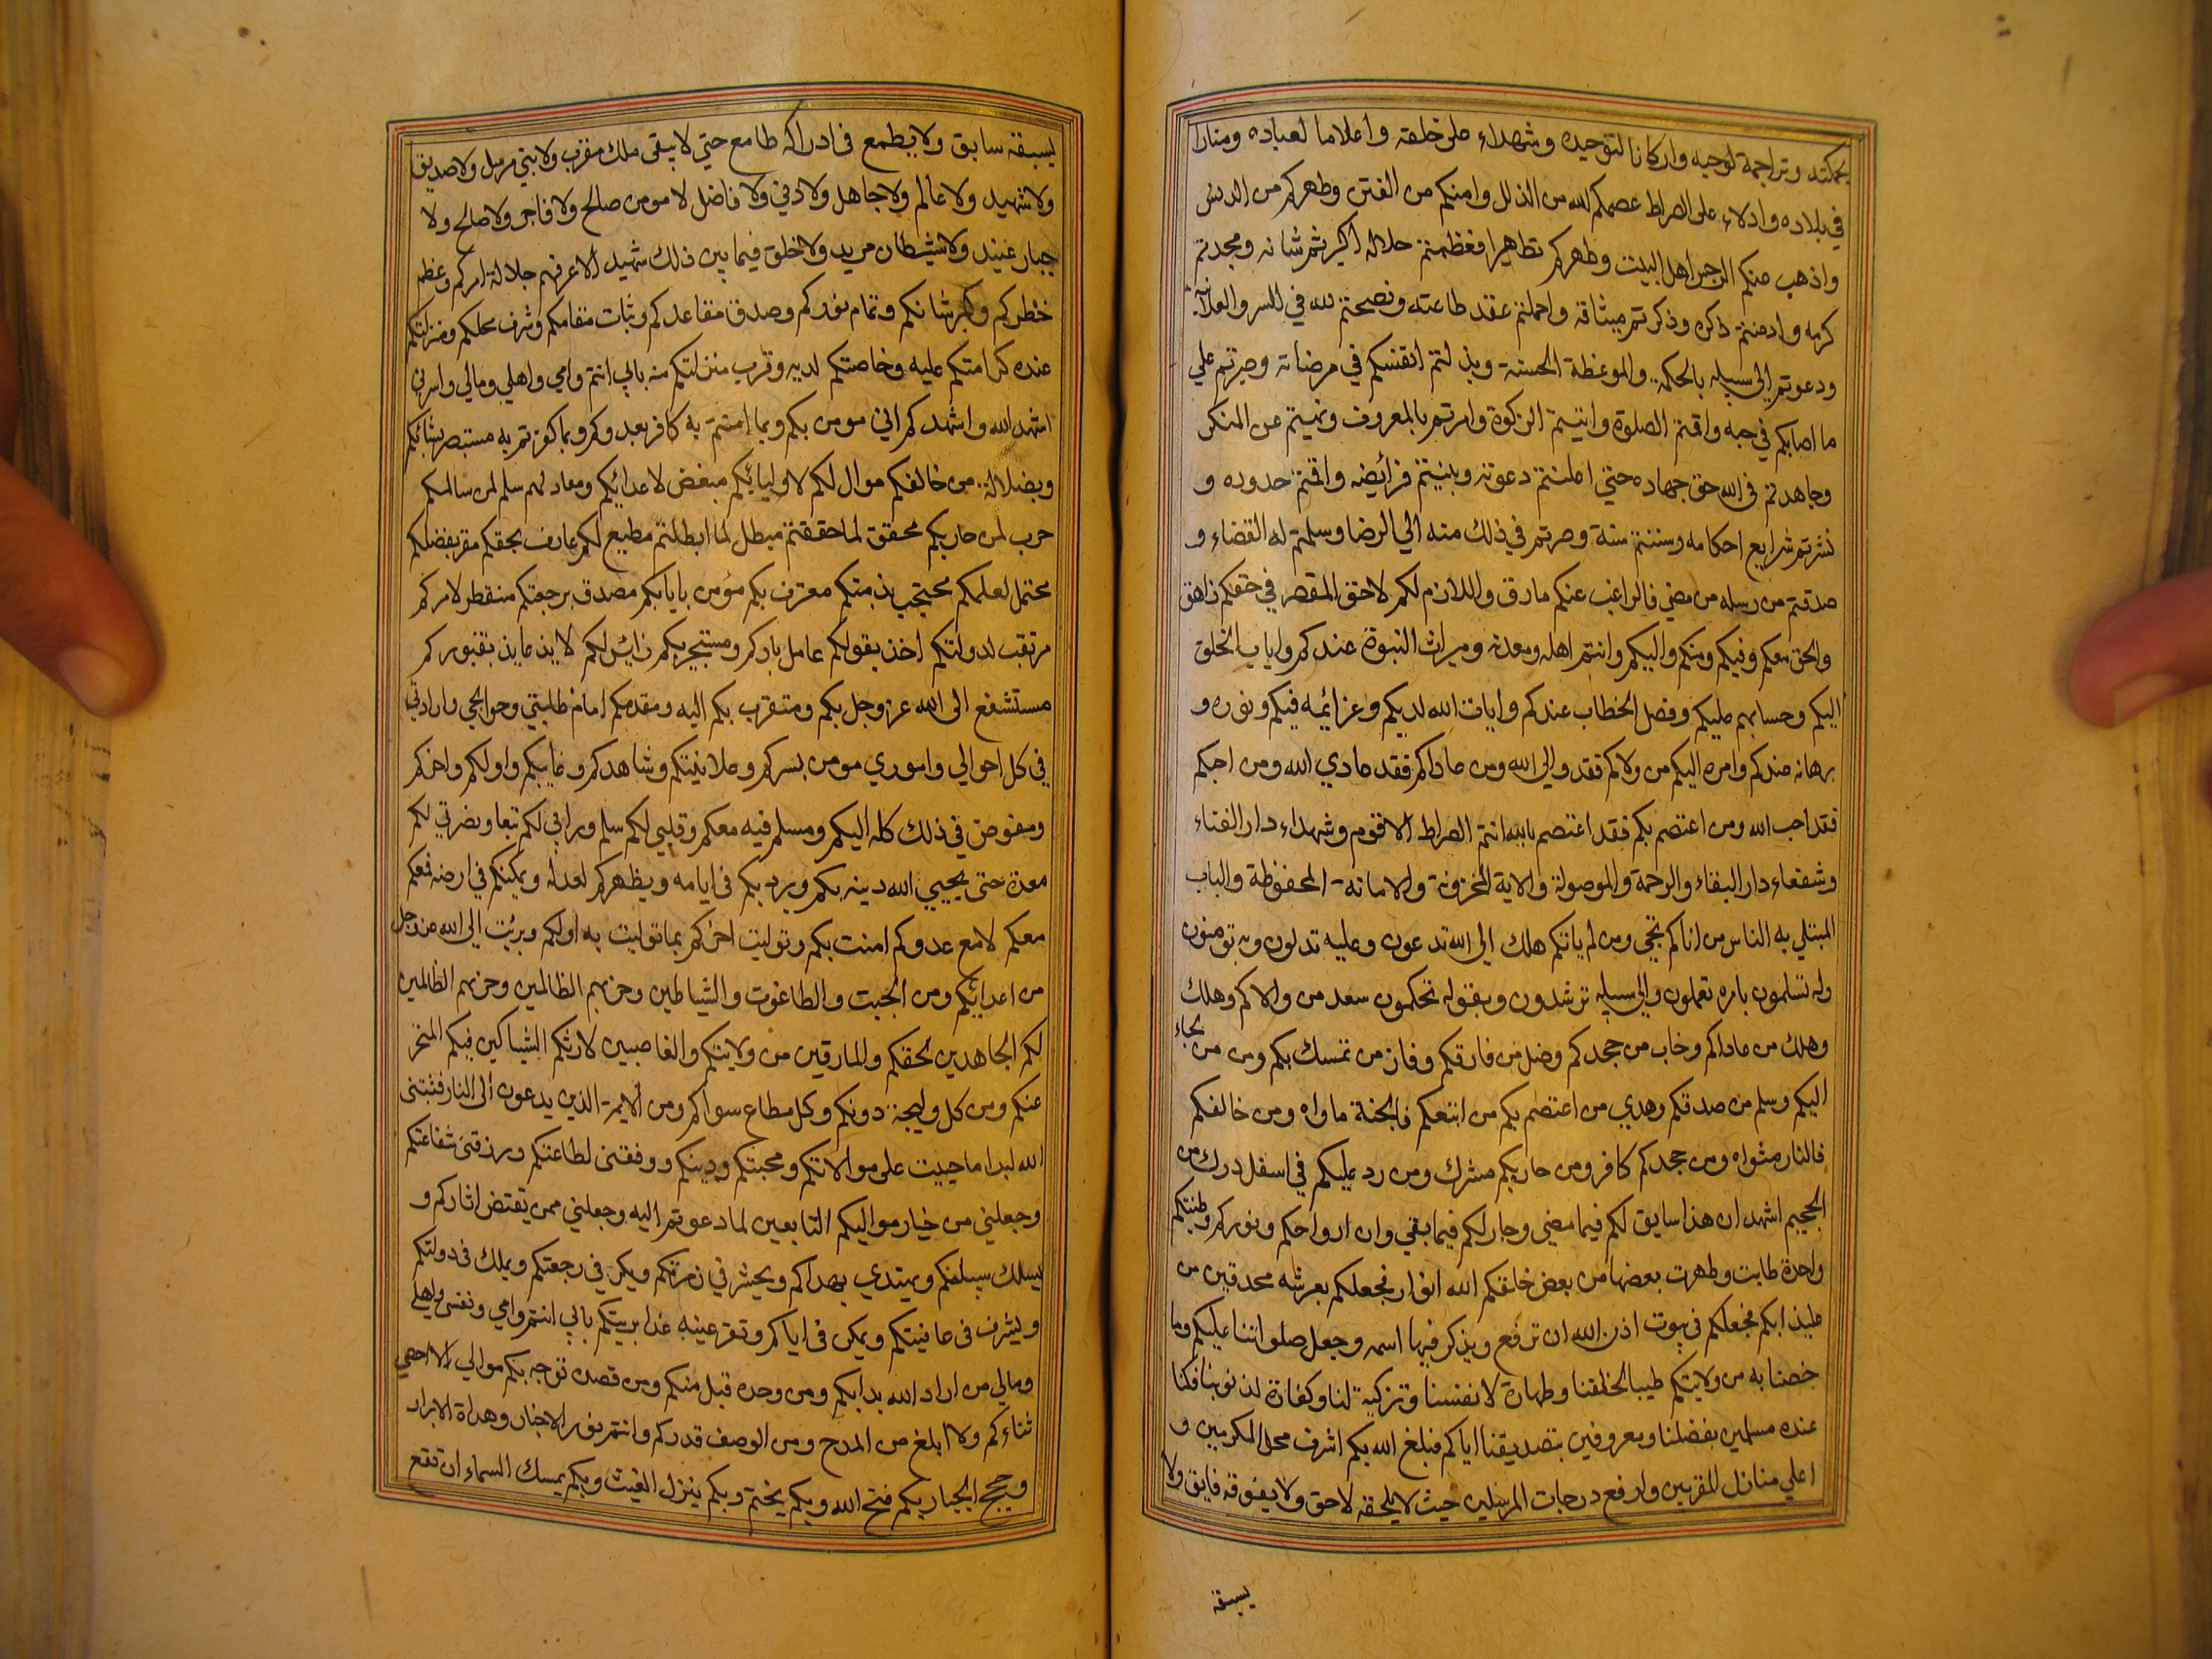 بحكمته وتراجمة لوحيه واركانا لتوحيده وشهداء على خلقه واعلاما لعباده ومنارا
في بلاده وادلاء على الصراط عصمكم الله من الذلل وامنكم من الفتن وطهركم من الدنس
واذهب عنكم الرجس اهل البيت وطهركم تطهيرا فعظمتم جلاله اكبرتم شانه ومجدتم
كرمه وادمنتم ذكره وذكرتم ميثاقه واحملتم عقد طاعته ونصحتم له في السر والعلانية
ودعوتم الى سبيله بالحكمة والموعظة الحسنة وبذلتم انفسكم في مرضاته وصبرتم علي
ما اصابكم في جبه واقمتم الصلوة واتيتم الزكوة وامرتم بالمعروف ونهيتم عن المنكر
وجاهدتم في الله حق جهاده حتي اعلنتم دعوته وبينتم فرائضه واقمتم حدوده و
نشرتم شرايع احكامه وسننتم سنة وصرتم في ذلك منه الي الرضا وسلمتم له القضاء و
صدقتم من رسله من مضي فالراغب عنكم مارق واللازم لكم لاحق والمقصر في حقكم زاهق
والحق معكم وفيكم ومنكم واليكم وانتم اهله ومعدنه وميراث النبوة عندكم واياب الخلق
اليكم وحسابهم عليكم وفصل الخطاب عندكم وايات الله لديكم وعزائمه فيكم ونوره و
برهانه عندكم وامره اليكم من ولاكم فقد والى الله ومن عاداكم فقد عادي الله ومن احبكم
فقد احب الله ومن اعتصم بكم فقد اعتصم بالله انتم الصراط الاقوم وشهداء دار الفناء
وشفعاء دار البقاء والرحمة والموصولة والاية المخزونة والامانة المحفوظة والباب
المبتلي به الناس من اتاكم نجي ومن لم ياتكم هلك الي الله تدعون وعليه تدلون وبه تومنون
وله تسلمون بامره تعملون والى سبيله ترشدون وبقوله تحكمون سعد من والاكم وهلك
وهلك من عاداكم وخاب من جحدكم وضل من فارقكم وفاز من تمسك بكم ومن من لجاء
اليكم وسلم من صدقكم وهدي من اعتصم بكم من اتبعكم فالجنة ماواه ومن خالفكم
فالنار مثواه ومن جحدكم كافر ومن حاربكم مشرك ومن رد عليكم في اسفل درك من
الجحيم اشهد ان هذا سابق لكم فيما مضي وجار لكم فيما بقي وان ارواحكم ونوركم وطينتكم
واحدة طابت وطهرت بعضها من بعض خلقكم الله انوار فجعلكم بعرشه محدقين من
علينا بكم فجعلكم في بيوت اذن الله ان ترفع ويذكر فيها اسمه وجعل صلواتنا عليكم وما
خصنا به من ولايتكم طيبا لخلقنا وطهارة لانفسنا وتزكية لنا وكفارة لذنوبنا فكنا
عنده مسلمين بفضلنا ومعروفين بتصديقنا اياكم فبلغ الله بكم اشرف محل المكرمين و
اعلي منازل المقربين وارفع درجات المرسلين حيث لا يلحقه لاحق ولا يفوقه فايق ولا
يسبقه
يسبقه سابق ولا يطمع في ادراكه طامع حتي لا يبقى ملك مقرب ولا نبي مرسل ولا صديق
ولا شهيد ولا عالم ولا جاهل ولا دني ولا فاضل لا مومن صالح ولا فاجر ولا صالح ولا
جبار عنيد ولا شيطان مريد ولا خلق فيما بين ذلك شهيد الا عرفهم جلالة امركم وعظم
خطركم وكبر شانكم وتمام نوركم وصدق مقاعدكم وثبات مقامكم وشرف محلكم ومنزلتكم
عنده كرامتكم عليه وخاصتكم لديه وقرب منزلتكم منه بابي انتم وامي واهلي ومالي واسرتي
اشهد الله واشهدكم اني مومن بكم وبما امنتم به كافر بعدوكم وبما كفرتم به مستبصر بشانكم
وبضلالة من خالفكم موال لكم لاوليائكم مبغض لاعدائكم ومعاد لهم سلم لمن سالمكم
حرب لمن حاربكم محقق لما حققتم مبطل لما ابطلتم مطيع لكم عارف بحقكم مقر بفضلكم
محتمل لعلمكم محتجب بذمتكم معترف بكم مؤمن باياتكم مصدق برجعتكم منتظر لامركم
مرتقب لدولتكم اخذ بقولكم عامل بامركم ومستجير بكم زائر لكم لايذ عايذ بقبوركم
مستشفع الى الله عز وجل بكم ومتقرب بكم اليه ومقدمكم امام طلبتي وحوائجي وارادتي
في كل احوالي واموري مومن بسركم وعلانيتكم وشاهدكم وغايبكم واولكم واخركم
ومفوض في ذلك كله اليكم ومسلم فيه معكم وقلبي لكم سلم ورايي لكم تبعا ونصرتي لكم
معدة حتى يحيي الله دينه بكم ويردبكم في ايامه ويظهركم لعدله ويمكنكم في ارضه فمعكم
معكم لا مع عدوكم امنت بكم وتوليت اخركم بما توليت به اولكم وبرئت الي الله عز وجل
من اعدائكم ومن الجبت والطاغوت والشياطين وحزبهم الظالمين وحزبهم الظالمين
لكم الجاهدين لحقكم والمارقين من ولايتكم والغاصبين لارثكم الشياكين فيكم المنحر
عنكم ومن كل وليجة دونكم وكل مطاع سواكم ومن الايمة الذين يدعون الى النار فثبتنى
الله ابدا ما حييت على موالاتكم ومحبتكم ودينكم ووفقنى لطاعتكم ورزقنى شفاعتكم
وجعلني من خيار مواليكم التابعين لما دعوتم اليه وجعلني ممن يقتص اثاركم و
يسلك سبيلكم ويهتدي بهداكم ويحشر في زمرتكم ويكر في رجعتكم ويملك في دولتكم
ويشرف في عافيتكم ويمكن في اياكم وتقر عينه غدا برؤيتكم بابي انتم وامي ونفسي واهلي
ومالي من اراد الله بدا بكم ومن وحده قبل منكم ومن قصده توجه بكم موالي لا احصي
ثناءكم ولا ابلغ من المدح ومن الوصف قدركم وانتم نور الاخيار وهداة الابرار
وحجج الجبار بكم فتح الله وبكم يختم وبكم ينزل الغيث وبكم يمسك السماء ان تقع